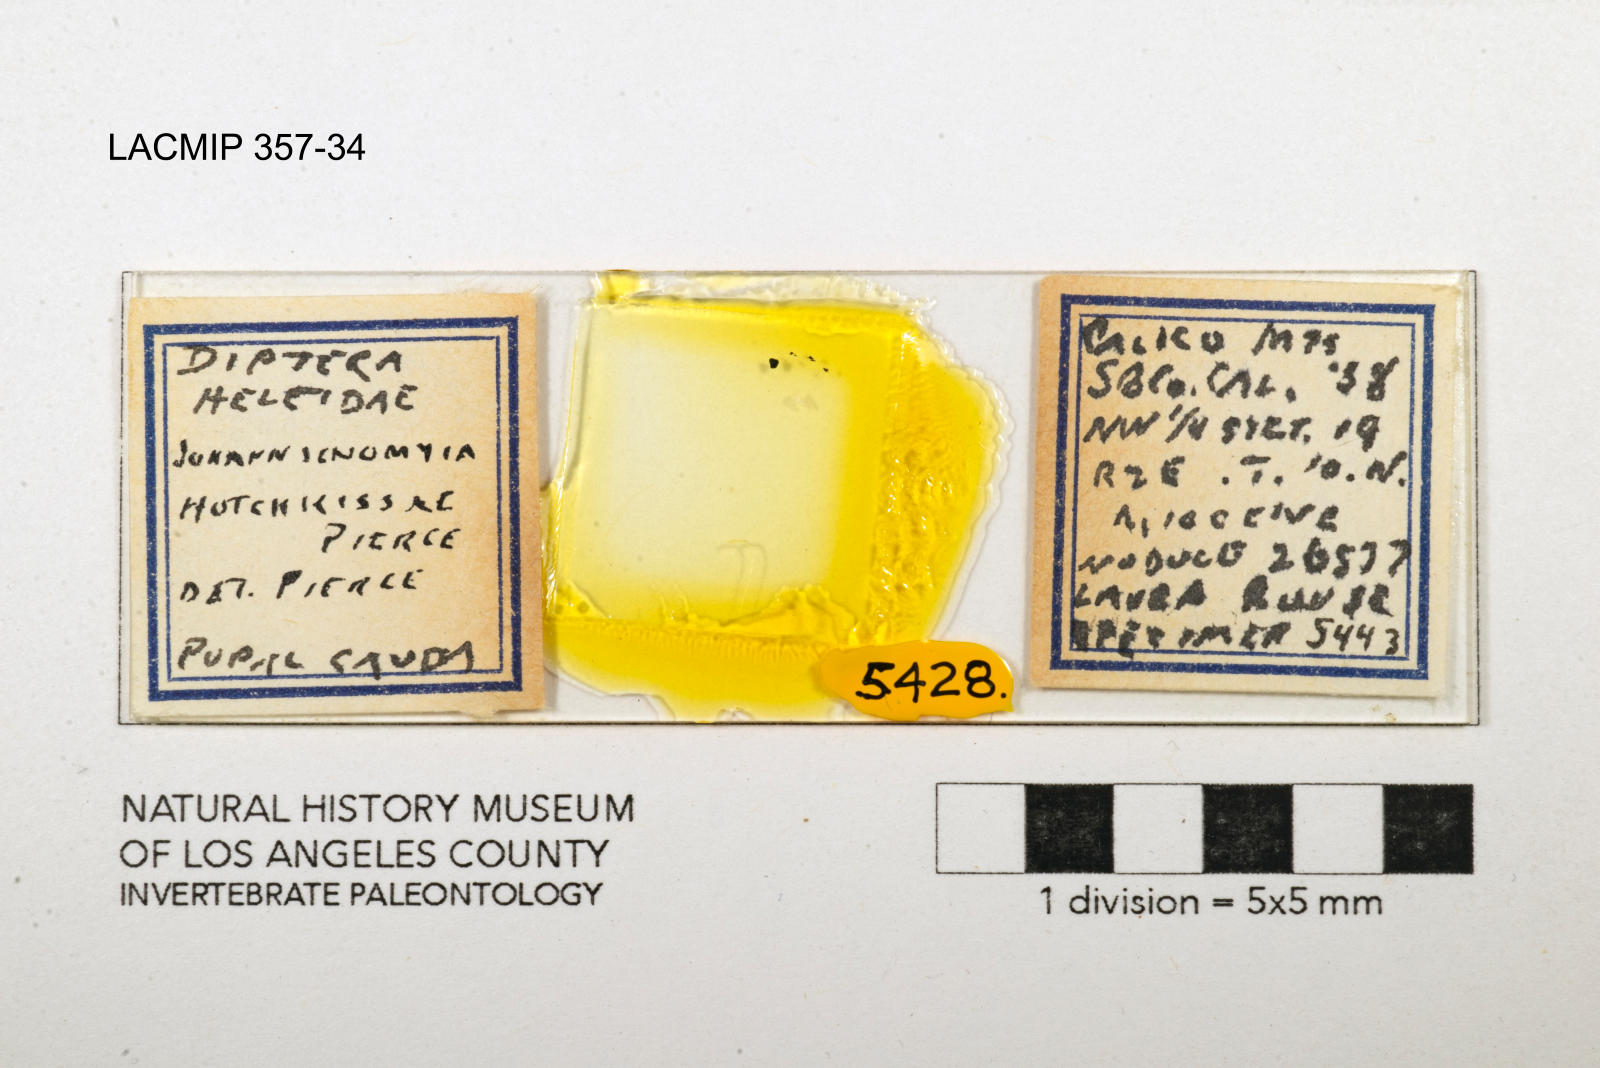 LACMIP 357-34
DIPTERA
HELEIDAE
JOHANNSENOMYIA
HOTCHKISSAE
PIERCE
DET. PIERCE
PUPAL CAUDA
CALICO MTS
SBCO. CAL. '58
NW 1/4 SECT. 19
R2E . T. 10. N.
MIOCENE
NODULE 26577
LAURA
SPECIMEN 5443
5428.
NATURAL HISTORY MUSEUM
OF LOS ANGELES COUNTY
INVERTEBRATE PALEONTOLOGY
1 division = 5x5 mm